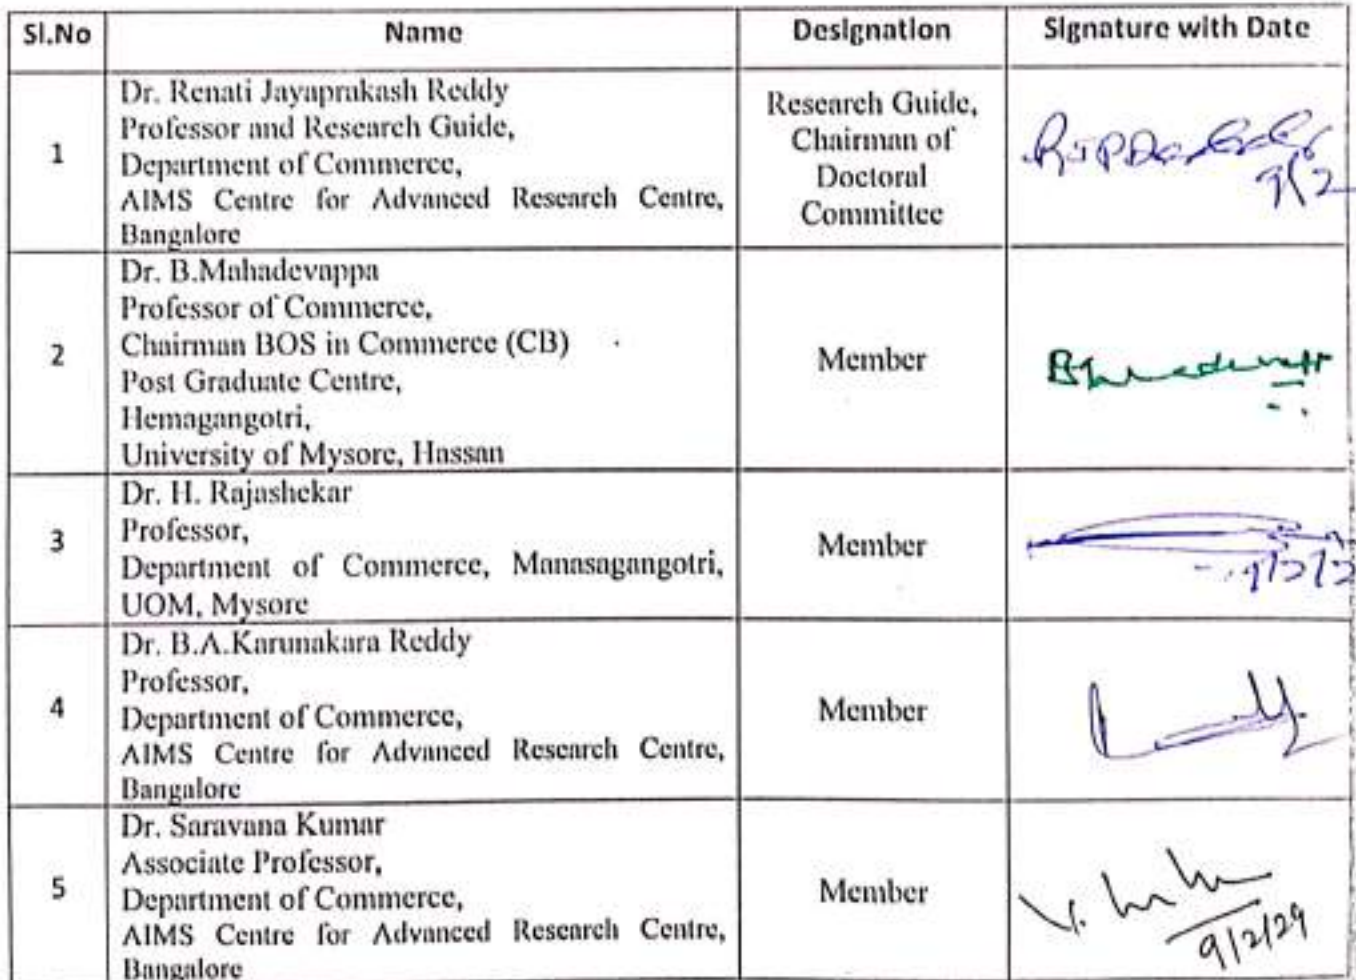 Sl.No Name Designation Signature with Date
1
Dr. Renati Jayaprakash Reddy
Professor and Research Guide,
Department of Commerce,
AIMS Centre for Advanced Research Centre,
Bangalore
Research Guide,
Chairman of
Doctoral
Committee
9/2
2
Dr. B.Mahadevappa
Professor of Commerce,
Chairman BOS in Commerce (CB)
Post Graduate Centre,
Hemagangotri,
University of Mysore, Hassan
Member
3
Dr. H. Rajashekar
Professor,
Department of Commerce, Manasagangotri,
UOM, Mysore
Member
4
Dr. B.A.Karunakara Reddy
Professor,
Department of Commerce,
AIMS Centre for Advanced Research Centre,
Bangalore
Member
5
Dr. Saravana Kumar
Associate Professor,
Department of Commerce,
AIMS Centre for Advanced Research Centre,
Bangalore
Member
9/2/29